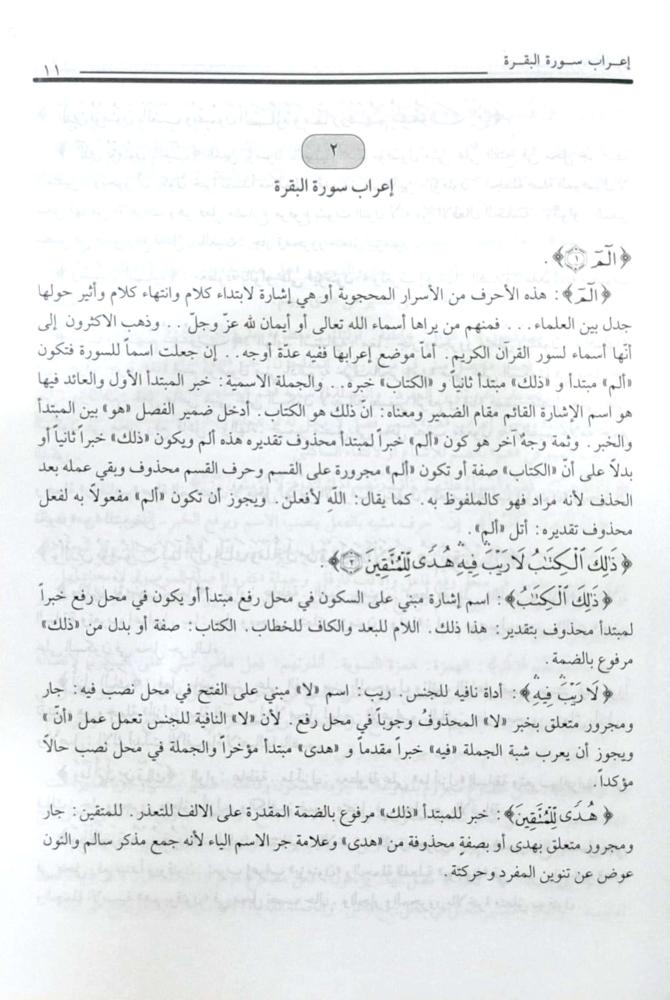 إعراب سورة البقرة
١١
٢
إعراب سورة البقرة
﴿الٓمٓ ۝١﴾ .
﴿الٓمٓ﴾: هذه الأحرف من الأسرار المحجوبة أو هي إشارة لابتداء كلام وانتهاء كلام وأثير حولها
جدل بين العلماء... فمنهم من يراها أسماء الله تعالى أو أيمان لله عزّ وجلّ... وذهب الاكثرون إلى
أنّها أسماء لسور القرآن الكريم. أما موضع إعرابها ففيه عدّة أوجه.. إن جعلت اسماً للسورة فتكون
«ألم» مبتدأ و «ذلك» مبتدأ ثانياً و «الكتاب» خبره.. والجملة الاسمية: خبر المبتدأ الأول والعائد فيها
هو اسم الإشارة القائم مقام الضمير ومعناه: انّ ذلك هو الكتاب. أدخل ضمير الفصل «هو» بين المبتدأ
والخبر. وثمة وجهٌ آخر هو كون «ألم» خبراً لمبتدأ محذوف تقديره هذه ألم ويكون «ذلك» خبراً ثانياً أو
بدلاً على أنّ «الكتاب» صفة أو تكون «ألم» مجرورة على القسم وحرف القسم محذوف وبقي عمله بعد
الحذف لأنه مراد فهو كالملفوظ به. كما يقال: اللهِ لأفعلن. ويجوز أن تكون «ألم» مفعولاً به لفعل
محذوف تقديره: أتل «ألم».
﴿ذَٰلِكَ ٱلْكِتَٰبُ لَا رَيْبَۛ فِيهِۛ هُدًى لِّلْمُتَّقِينَ ۝٢﴾.
﴿ذَٰلِكَ ٱلْكِتَٰبُ﴾: اسم إشارة مبني على السكون في محل رفع مبتدأ أو يكون في محل رفع خبراً
لمبتدأ محذوف بتقدير: هذا ذلك. اللام للبعد والكاف للخطاب. الكتاب: صفة أو بدل من «ذلك»
مرفوع بالضمة.
﴿لَا رَيْبَۛ فِيهِۛ﴾: أداة نافيه للجنس. ريب: اسم «لا» مبني على الفتح في محل نصب فيه: جار
ومجرور متعلق بخبر «لا» المحذوفُ وجوباً في محل رفع. لأن «لا» النافية للجنس تعمل عمل «أنّ»
ويجوز أن يعرب شبة الجملة «فيه» خبراً مقدماً و «هدى» مبتدأ مؤخراً والجملة في محل نصب حالاً
مؤكداً.
﴿هُدًى لِّلْمُتَّقِينَ﴾: خبر للمبتدأ «ذلك» مرفوع بالضمة المقدرة على الالف للتعذر. للمتقين: جار
ومجرور متعلق بهدى أو بصفةٍ محذوفة من «هدى» وعلامة جر الاسم الياء لأنه جمع مذكر سالم والنون
عوض عن تنوين المفرد وحركتة.